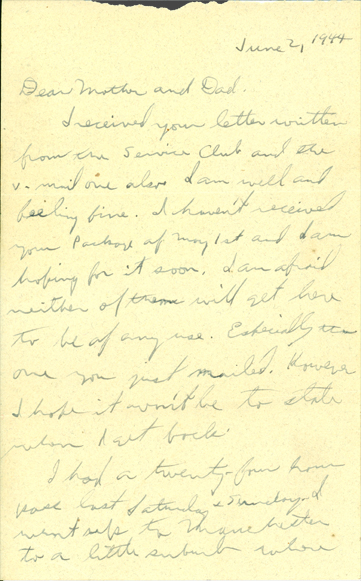 June 2, 1944
Dear Mother and Dad.
I received your letter written
from the Service Club and the
v-mail one also. I am well and
feeling fine. I haven't received
your package of May 1st and I am
hoping for it soon. I am afraid
neither of them will get here
to be of any use. Especially the
one you just mailed. However
I hope it won't be to stale
when I get back.
I had a twenty-four hour
pass last Saturday & Sunday. I
went up to Manchester
to a little suburb where